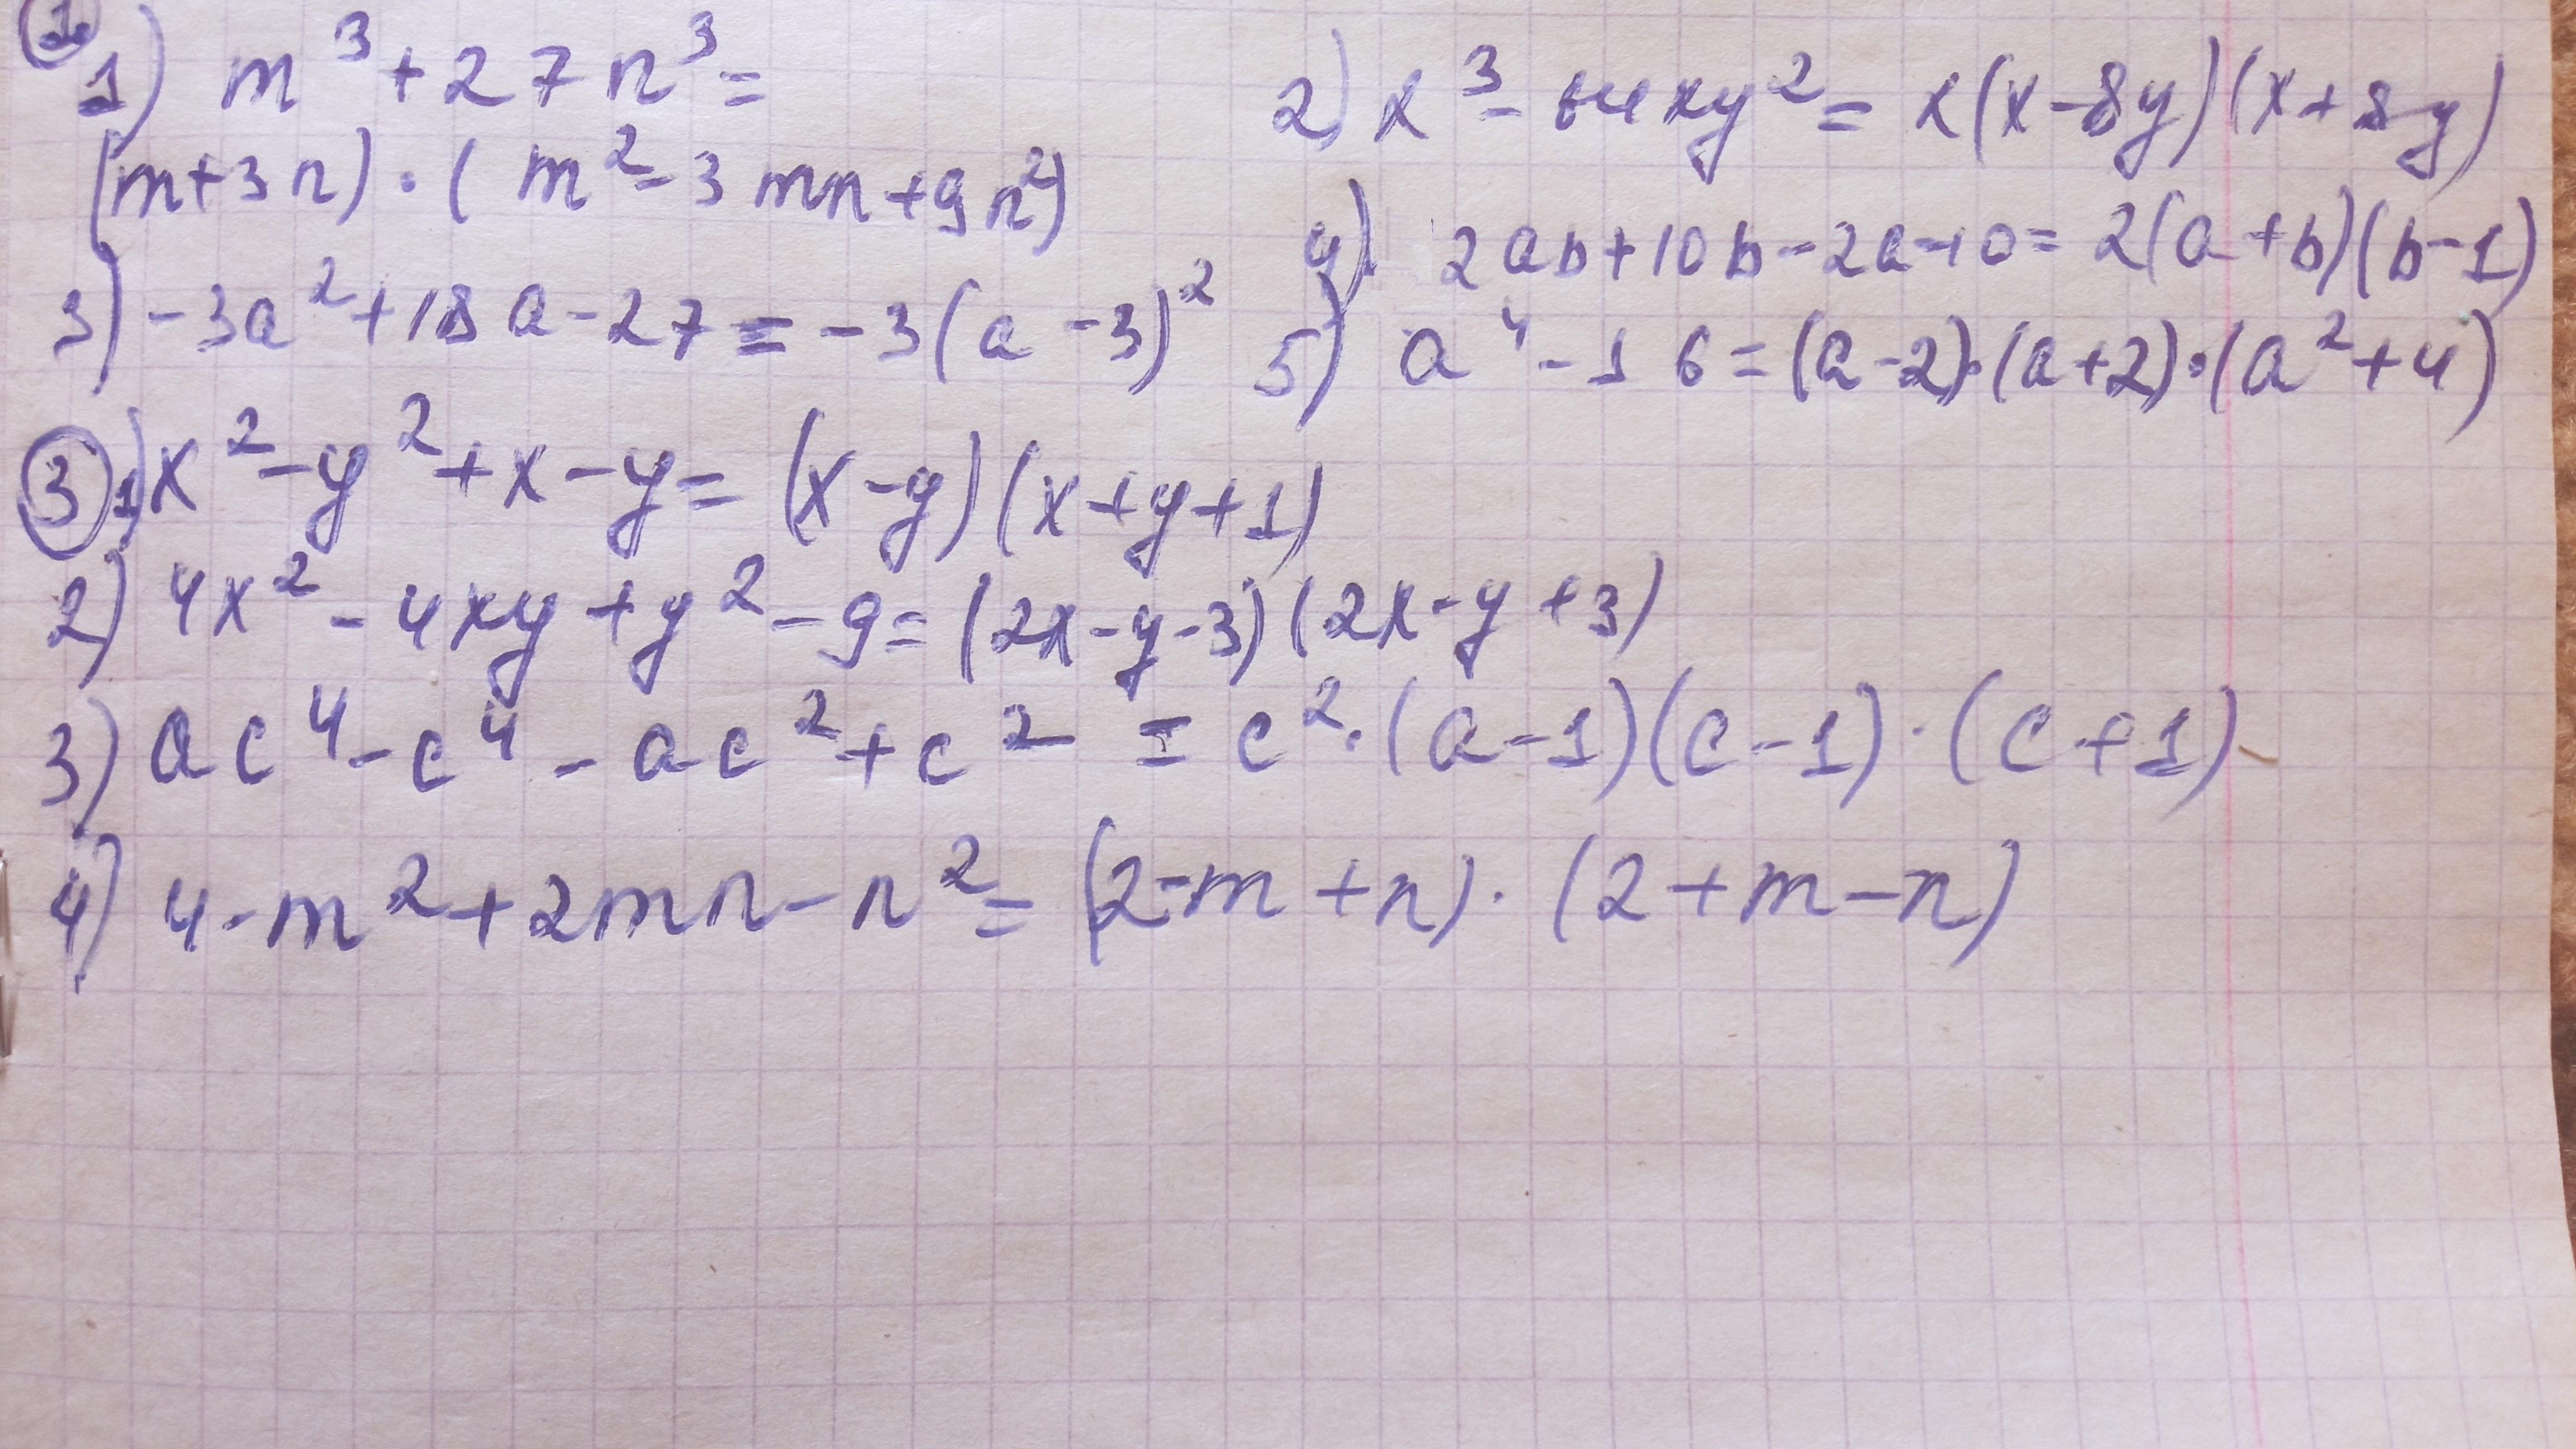 1) m³+27n³=
(m+3n)·(m²-3mn+9n²)
2) x³-64xy²=x(x-8y)(x+8y)
3) -3a²+18a-27=-3(a-3)²
4) 2ab+10b-2a-10=2(a+b)(b-1)
5) a⁴-16=(a-2)·(a+2)·(a²+4)
③ 1) x²-y²+x-y=(x-y)(x+y+1)
2) 4x²-4xy+y²-9=(2x-y-3)(2x-y+3)
3) ac⁴-c⁴-ac²+c²=c²·(a-1)(c-1)·(c+1)
4) 4-m²+2mn-n²=(2-m+n)·(2+m-n)